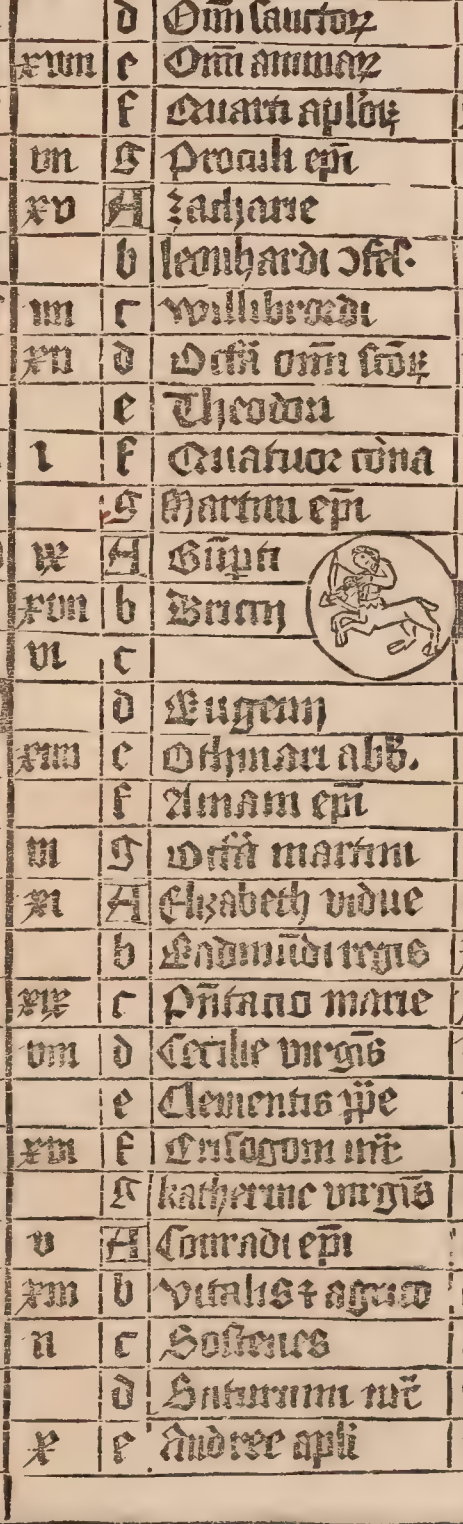 d Oīm sanctoꝝ
xviii e Oīm animaꝝ
f Quarti aploꝝ
vii g Proculi ep̄i
xv A Zacharie
b leonhardi ↄfes.
iiii c willibrordi
xii d Octā oīm scōꝝ
e Theodori
i f Quatuor corōna
g Martini ep̄i
ix A
xvii b Briccij
vi c
d Eugenij
xiiii e Othmari abb̄.
f Amani ep̄i
iii g Octā martini
xi A Elizabeth vidue
b Eadmūdi regis
xix c Pn̄tatio marie
viii d Cecilie virgīs
e Clementis pp̄e
xvi f Crisogoni mr̄
g katherine virgīs
v A Conradi ep̄i
xiii b vitalis ⁊ agrico
ii c Sostenes
d Saturnini mr̄
x e Andree apli